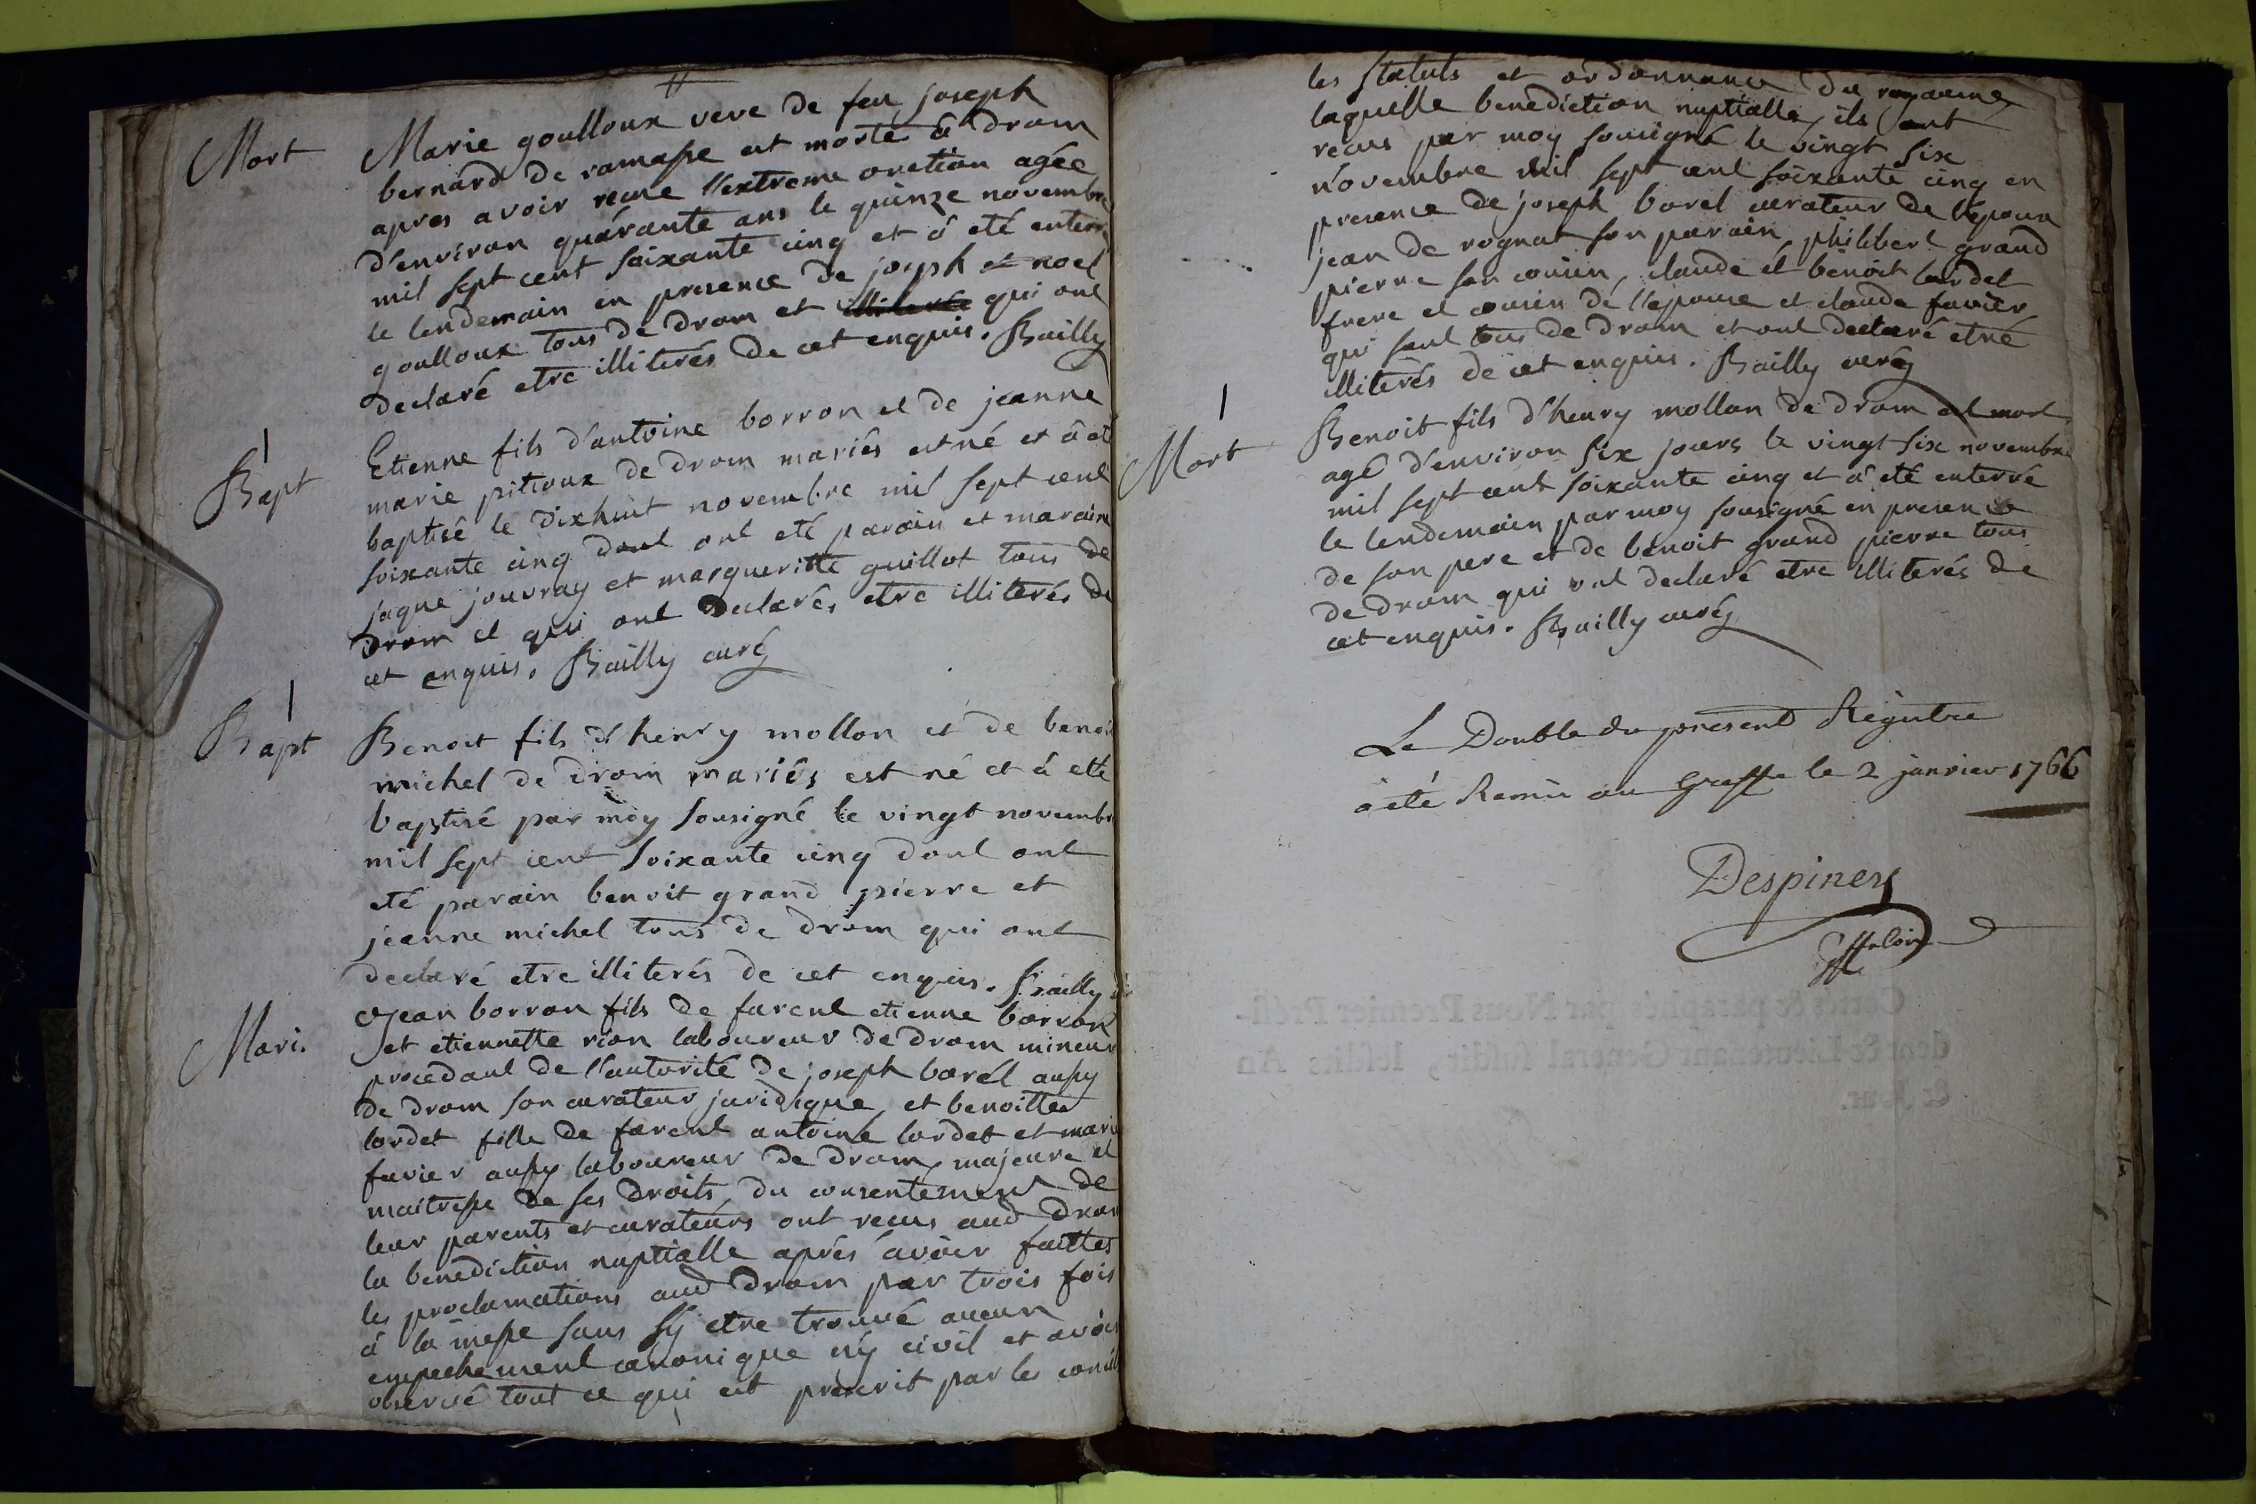 Mort
Marie goulloux veve de feu joseph
bernard de ramasse est morte à drom
apres avoir recue l'extreme onction agée
d'environ quárante ans le quinze novembre
mil sept cent soixante cinq et à eté enterré
le lendemain en presence de joseph et noel
goulloux tous de drom et qui ont
declaré etre illiterés de cet enquis. Bailly
Bapt
Etienne fils d'antoine borron et de jeanne
marie pitioux de drom mariés est né et à eté
baptisé le dixhuit novembre mil sept cent
soixante cinq dont ont eté parain et maraine
jaque jouvray et margueritte guillot tous de
drom et qui ont declarés etre illiterés de
cet enquis. Bailly curé
Bapt
Benoit fils d'henry mollon et de benoi
michel de drom mariés est né et à eté
baptisé par moy sousigné le vingt novembre
mil sept cent soixante cinq dont ont
eté parain benoit grand pierre et
jeanne michel tous de drom qui ont
declaré etre illiterés de cet enquis. Bailly
Mari.
Jean borron fils de farent etienne borron
et etiennette rion laboureur de drom mineur
procedant de l'autorité de joseph borel aussy
de drom son curateur juridique et benoitte
lordet fille de farent antoine lordet et marie
favier aussy laboureur de drom, majeure et
maitresse de ses droits, du consentement de
leur parents et curateurs ont recus aud drom
la benediction nuptialle aprés avoir faittes
les proclamations aud drom par trois fois
á la messe sans sÿ etre trouvé aucun
empechement canonique nÿ civil et avoir
observé tout ce qui est prescrit par les concil
les statuts et ordonnance du royaume,
laquelle benediction nuptialle, ils ont
recus par moy sousigné le vingt six
novembre mil sept cent soixante cinq en
presence de joseph borel curateur de l'epoux
jean de rognat son parain philibert grand
pierre son cousin, claude et benoit lordet
frere et cousin de l'epouse et claude favier
qui sont tous de drom et ont declaré etre
illiterés de cet enquis. Bailly curé
Mort
Benoit fils d'henry mollon de drom est mort
agé d'environ six jours le vingt six novembre
mil sept cent soixante cinq et à eté enterré
le lendemain par moy sousigné en presence
de son pere et de benoit grand pierre tous
de drom qui ont declaré etre illiterés de
cet enquis. Bailly curé
Le Double du present Registre
à eté Remis au Greffe le 2 janvier 1766
Despiney